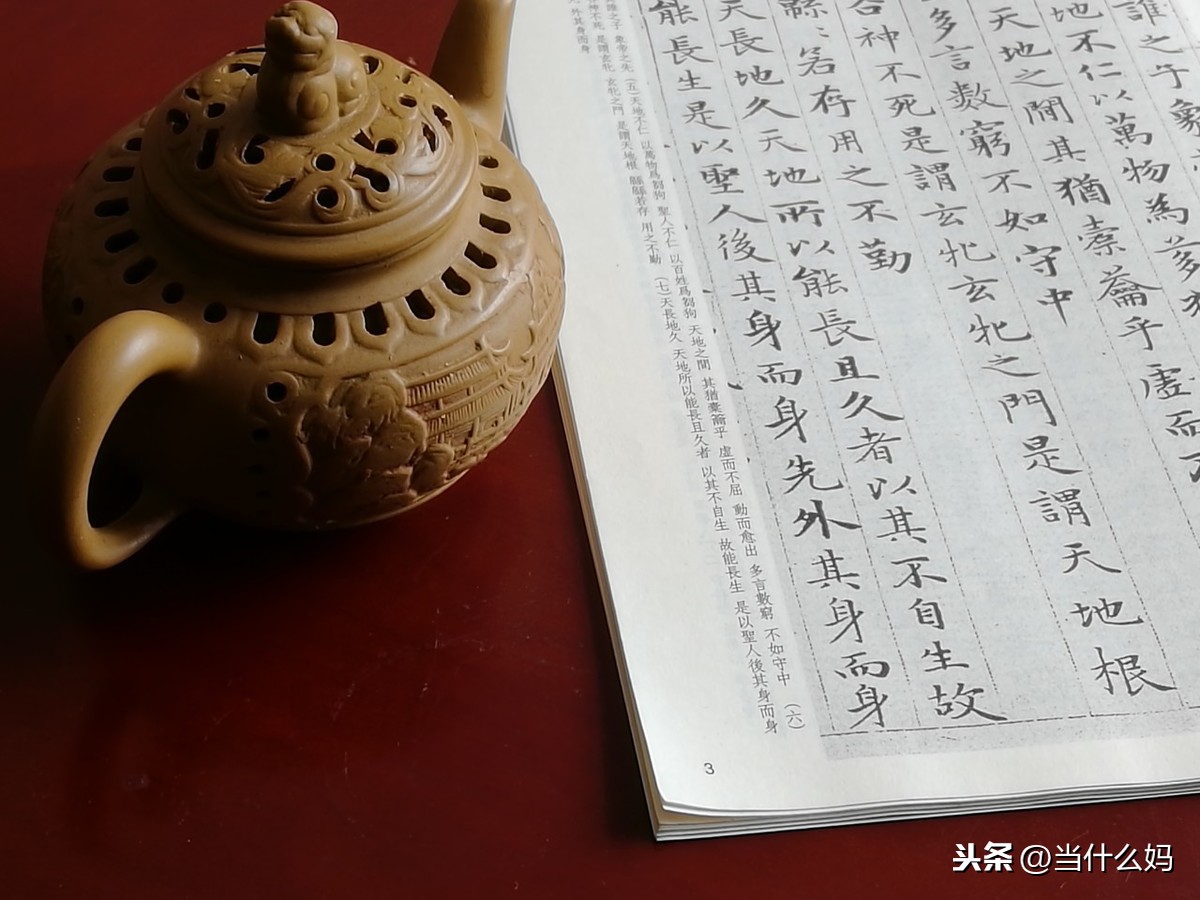 誰之子象
地不仁以萬物為芻狗
天地之間其猶橐籥乎虛而不
多言數窮不如守中
谷神不死是謂玄牝玄牝之門是謂天地根
緜〻若存用之不勤
天長地久天地所以能長且久者以其不自生故
能長生是以聖人後其身而身先外其身而身
之子 象帝之先 (五)天地不仁 以萬物爲芻狗 聖人不仁 以百姓爲芻狗 天地之間 其猶橐籥乎 虛而不屈 動而愈出 多言數窮 不如守中 (六)
神不死 是謂玄牝 玄牝之門 是謂天地根 緜緜若存 用之不勤 (七)天長地久 天地所以能長且久者 以其不自生 故能長生 是以聖人後其身而身
外其身而身
3
头条 @当什么妈